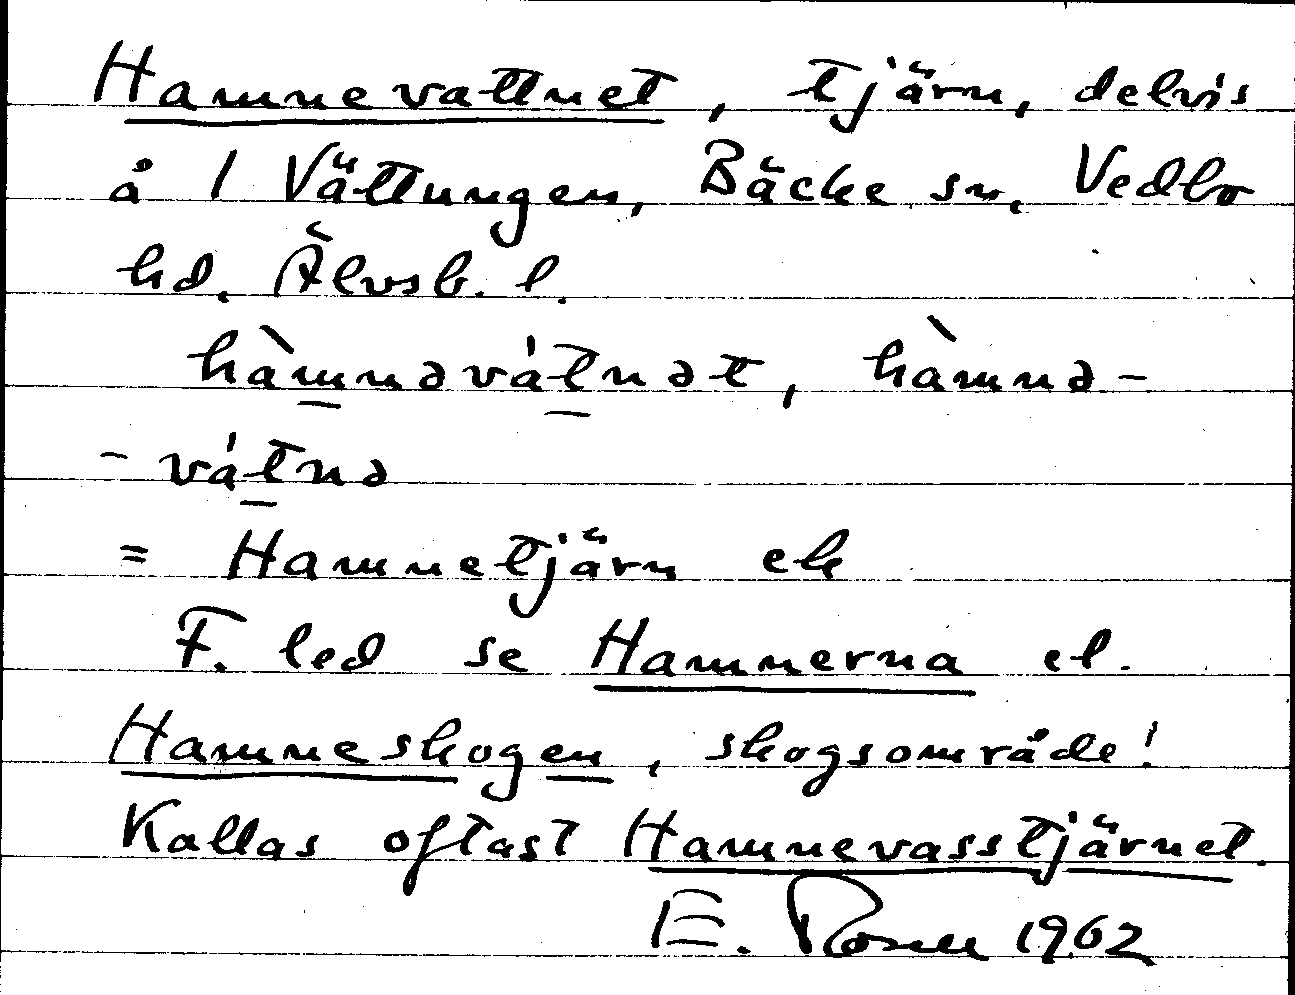 Hamnevattnet, tjärn, delvis
å 1 Vättungen, Bäcke sn, Vedbo
hd. Älvsb. l.
hàmnəvátnət, hàmnə-
-vátnə
= Hamnetjärn ek
F. led se Hamnerna el.
Hamneskogen, skogsområde!
Kallas oftast Hamnevasstjärnet.
E. 1962